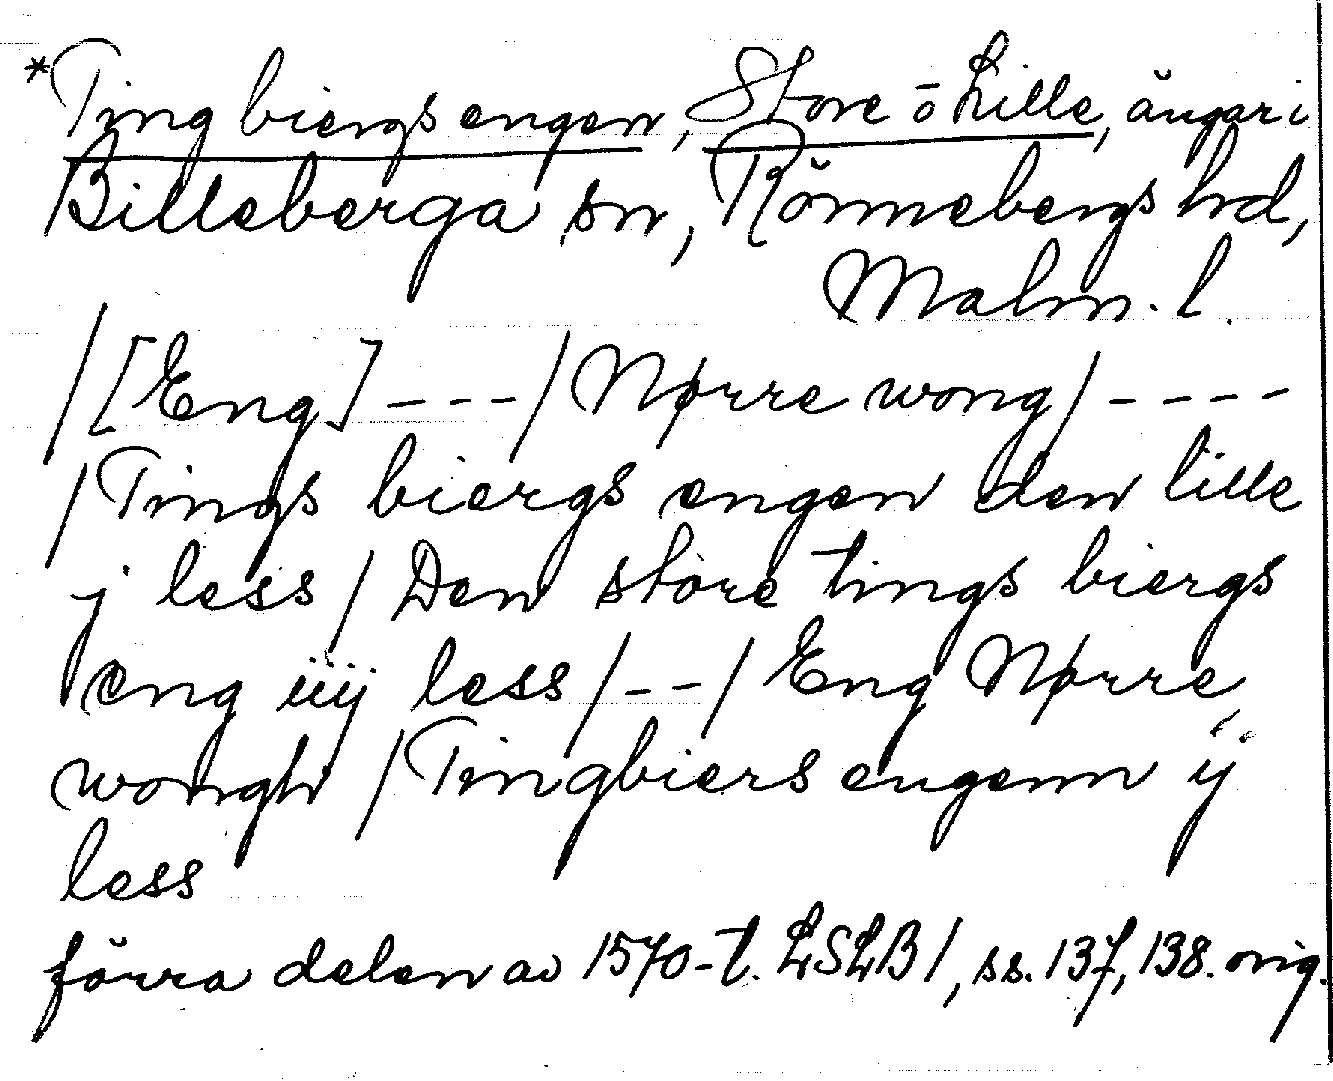 *Tingbiergsengen, Store o Lille, ängar i
Billeberga sn, Rönnebergs hd,
Malm. l.
/[Eng] --- / Nørre wong / ----
/ Tings biergs engen den lille
j less / Den store tings biergs
eng iiij less / -- / Eng Nørre
wongh / Tingbiers engenn ij
less
förra delen av 1570-t. LSLB 1, ss. 137, 138. orig.